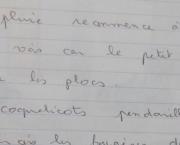 pluie recommence à
vais car le petit
les flocs.
coquelicots pendouill
les